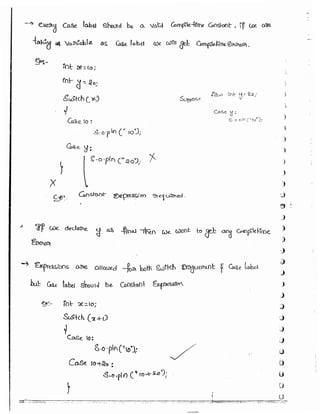 → every Case label should be a valid Compile-time Constant, if we are
taking a variable as Case label we will get CompileTimeError.
Ex:- int x=10;
int y=20;
Switch(x)
{
Case 10 :
S.o.pln("10");
Case y:
S.o.pln("20"); X
}
X
C.E:- Constant Expression required.
Suppose final int y=20;
Case y:
If we declare y as final then we want to get any CompileTime
Error
→ Expressions are allowed for both Switch Argument & Case label
but Case label should be Constant Expression
Ex:- int x=10;
Switch (x+1)
{
Case 10:
S.o.pln("10");
Case 10+20 :
S.o.pln("10+20");
}